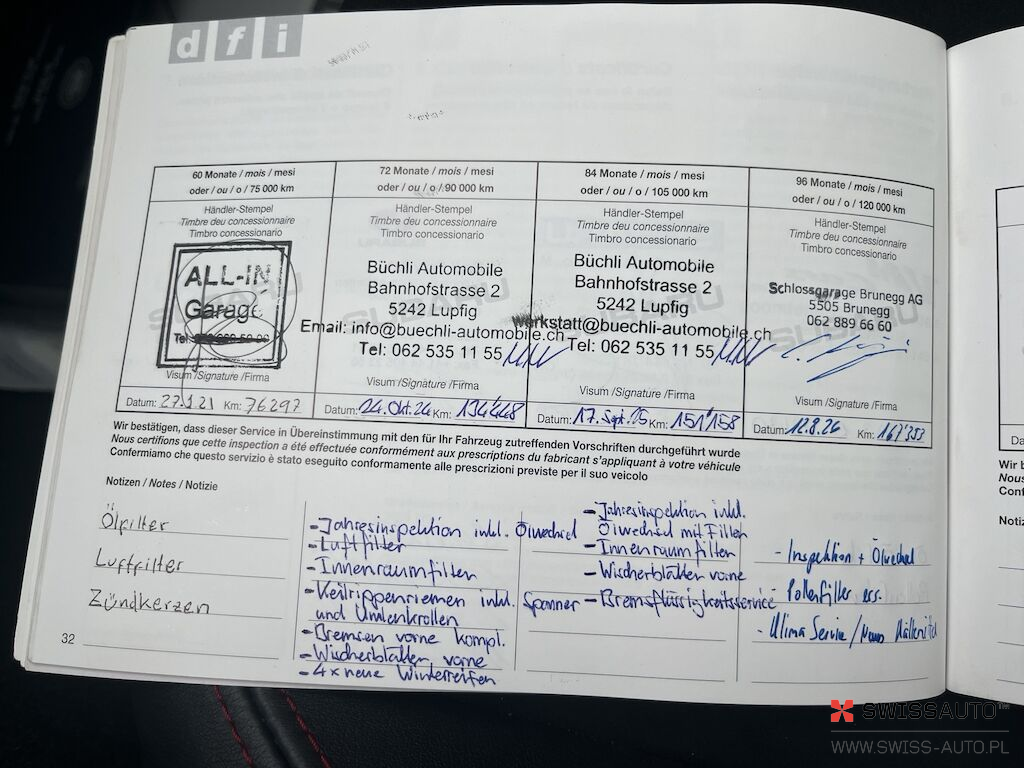 dfi
60 Monate / mois / mesi
oder / ou / o / 75 000 km
Händler-Stempel
Timbre deu concessionnaire
Timbro concessionario
ALL-IN
Garage
Tel
Visum /Signature /Firma
Datum: 27.1.21 Km: 76297
72 Monate / mois / mesi
oder / ou / o / 90 000 km
Händler-Stempel
Timbre deu concessionnaire
Timbro concessionario
Büchli Automobile
Bahnhofstrasse 2
5242 Lupfig
Email: info@buechli-automobile.ch
Tel: 062 535 11 55
Visum /Signature /Firma
Datum: 24. Okt. 24 Km: 134'448
84 Monate / mois / mesi
oder / ou / o / 105 000 km
Händler-Stempel
Timbre deu concessionnaire
Timbro concessionario
Büchli Automobile
Bahnhofstrasse 2
5242 Lupfig
werkstatt@buechli-automobile.ch
Tel: 062 535 11 55
Visum /Signature /Firma
Datum: 17. Sept. 25 Km: 151'158
96 Monate / mois / mesi
oder / ou / o / 120 000 km
Händler-Stempel
Timbre deu concessionnaire
Timbro concessionario
Schlossgarage Brunegg AG
5505 Brunegg
062 889 66 60
Visum /Signature /Firma
Datum: 12.8.26 Km:
Wir bestätigen, dass dieser Service in Übereinstimmung mit den für Ihr Fahrzeug zutreffenden Vorschriften durchgeführt wurde
Nous certifions que cette inspection a été effectuée conformément aux prescriptions du fabricant s'appliquant à votre véhicule
Confermiamo che questo servizio è stato eseguito conformamente alle prescrizioni previste per il suo veicolo
Notizen / Notes / Notizie
Ölfilter
Luftfilter
Zündkerzen
- Jahresinspektion inkl. Ölwechsel
- Luftfilter
- Innenraumfilter
- Keilrippenriemen inkl. Spanner
und Umlenkrollen
- Bremsen vorne kompl.
- Wischerblätter vorne
- 4x neue Winterreifen
- Jahresinspektion inkl.
Ölwechsel mit Filter
- Innenraumfilter
- Wischerblätter vorne
- Bremsflüssigkeitsservice
- Inspektion + Ölwechsel
- Pollenfilter ers.
- Klima Service /
32
Wir b
Nous
Conf
Notiz
SWISSAUTO
WWW.SWISS-AUTO.PL